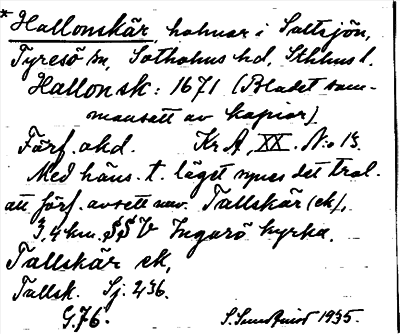 * Hallonskär, holmar i Saltsjön,
Tyresö sn, Sotholms hd, Sthlms l.
Hallonsk: 1671 (Bladet sam-
mansatt av kopior)
Förf. okd. Kr A, XX. No 13.
Med häns. t. läget synes det trol.
att förf. avsett nuv. Tallskär (ek),
3,4 km. SSV Ingarö kyrka.
Tallskär ek,
Tallsk. Sj. 236.
G.76. S. Sundqvist 1935.